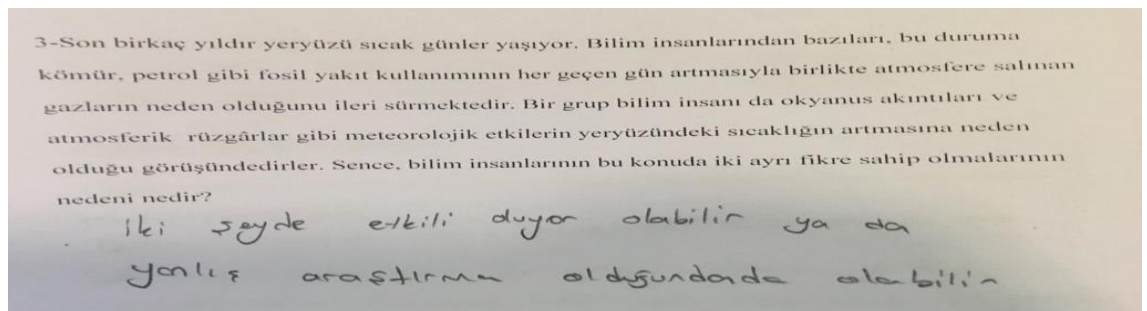 3-Son birkaç yıldır yeryüzü sıcak günler yaşıyor. Bilim insanlarından bazıları, bu duruma
kömür, petrol gibi fosil yakıt kullanımının her geçen gün artmasıyla birlikte atmosfere salınan
gazların neden olduğunu ileri sürmektedir. Bir grup bilim insanı da okyanus akıntıları ve
atmosferik rüzgârlar gibi meteorolojik etkilerin yeryüzündeki sıcaklığın artmasına neden
olduğu görüşündedirler. Sence, bilim insanlarının bu konuda iki ayrı fikre sahip olmalarının
nedeni nedir?
iki şeyde etkili oluyor olabilir ya da
yanlış araştırma olduğundanda olabilir